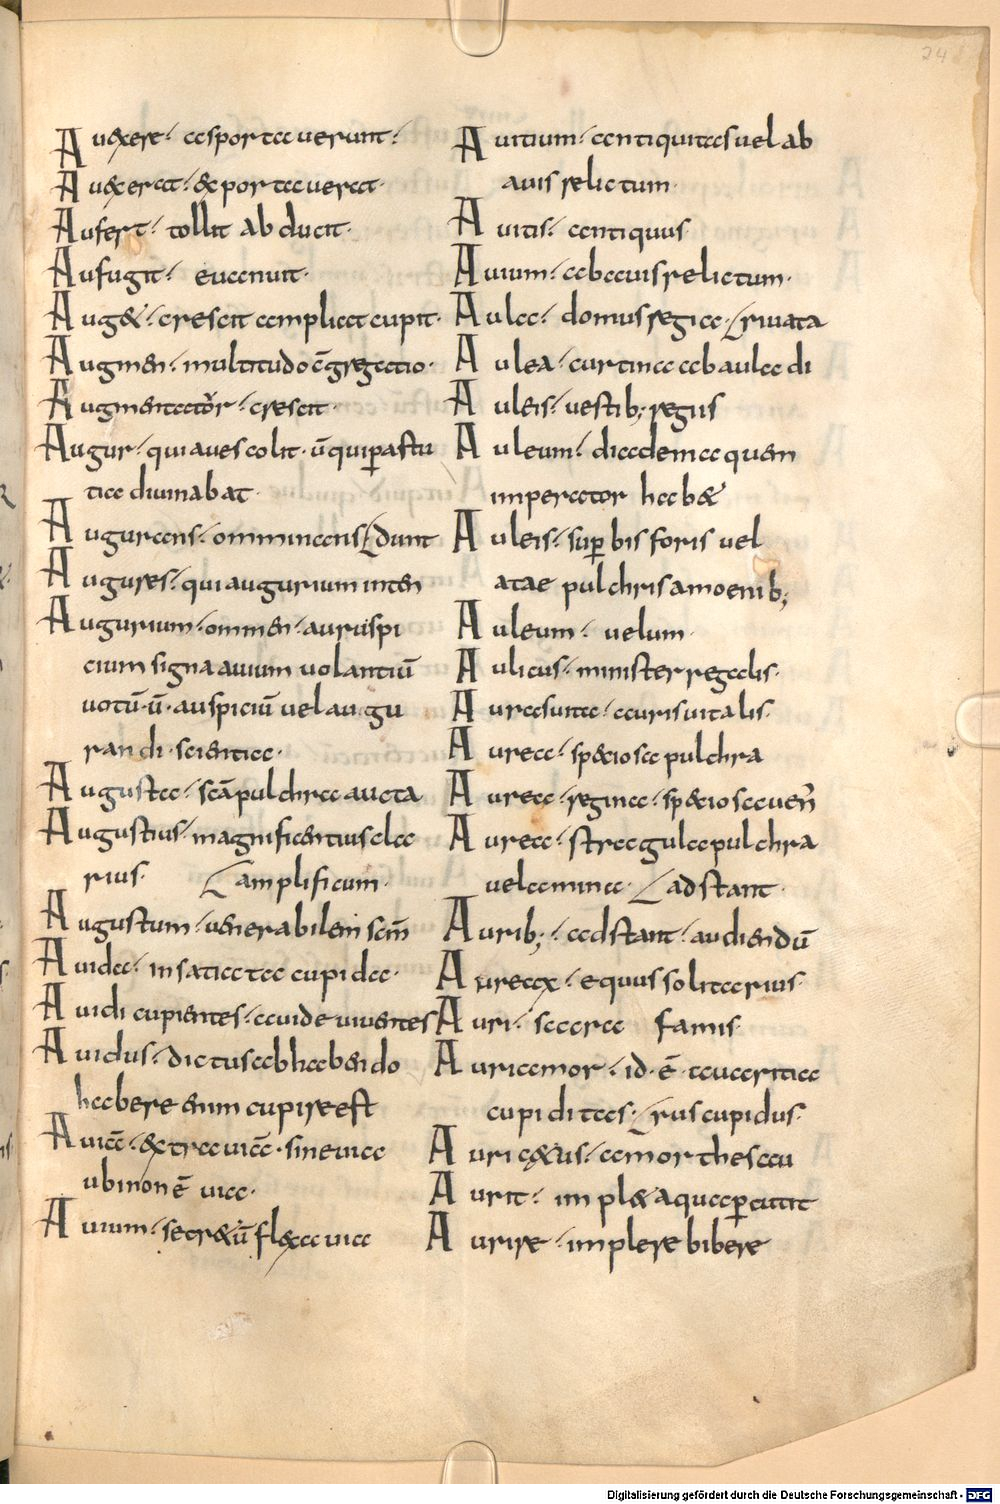 24
Auexere· asportauerunt·
Auexerat· exportauerat·
Aufert· tollit abducit·
Aufugit· euanuit·
Auget· crescit ampliat cupit·
Augmen· multitudo c̄gregatio·
Augmentator· crescit·
Augur· qui aues colit· ū qui p astu
tia diuinabat·
Augurans· ominans dunt
Augures· qui augurium inten
Augurium· ommen· auruspi
cium signa auium uolantiū
uotū· ū· auspiciū uel augu
randi· scientia·
Augusta· scā pulchra aucta
Augustius· magnificentius cla
rius· amplificum·
Augustum· uenerabilem scm̄
Auida· insatiata cupida·
Auidi cupientes· auide uiuentes
Auidus· dictus ab habendo
habere enim cupire est
Auiā· extra uiā· sine uia
ubi non ē uia·
Auium· secretū flexa uia
Auitium· antiquitas uel ab
auis relictum·
Auitis· antiquus·
Auium· ab auis relictum·
Aula· domus regia· priuata
Aulea· curtina ab aula di
Auleis· uestib; regiis
Auleum· diadema quem
imperator habet
Auleis· super bis foris uel
atae pulchris amoenib;
Auleum· uelum·
Aulicus· minister regalis·
Aurasuita· auris uitalis·
Aurea· speciosa pulchra
Aurea· regina· speciosa uen̄
Aurea· stragula pulchra
uel amina· adstant·
Aurib;· adstant· audiendū
Aureax· equus solitarius·
Auri· sacra famis·
Auriamor· id· ē· auaritia
cupiditas· rus cupidus·
Auri cęxus· amor thesau
Aurit· implet aqua p cutit
Aurire· implere bibere
Digitalisierung gefördert durch die Deutsche Forschungsgemeinschaft - DFG